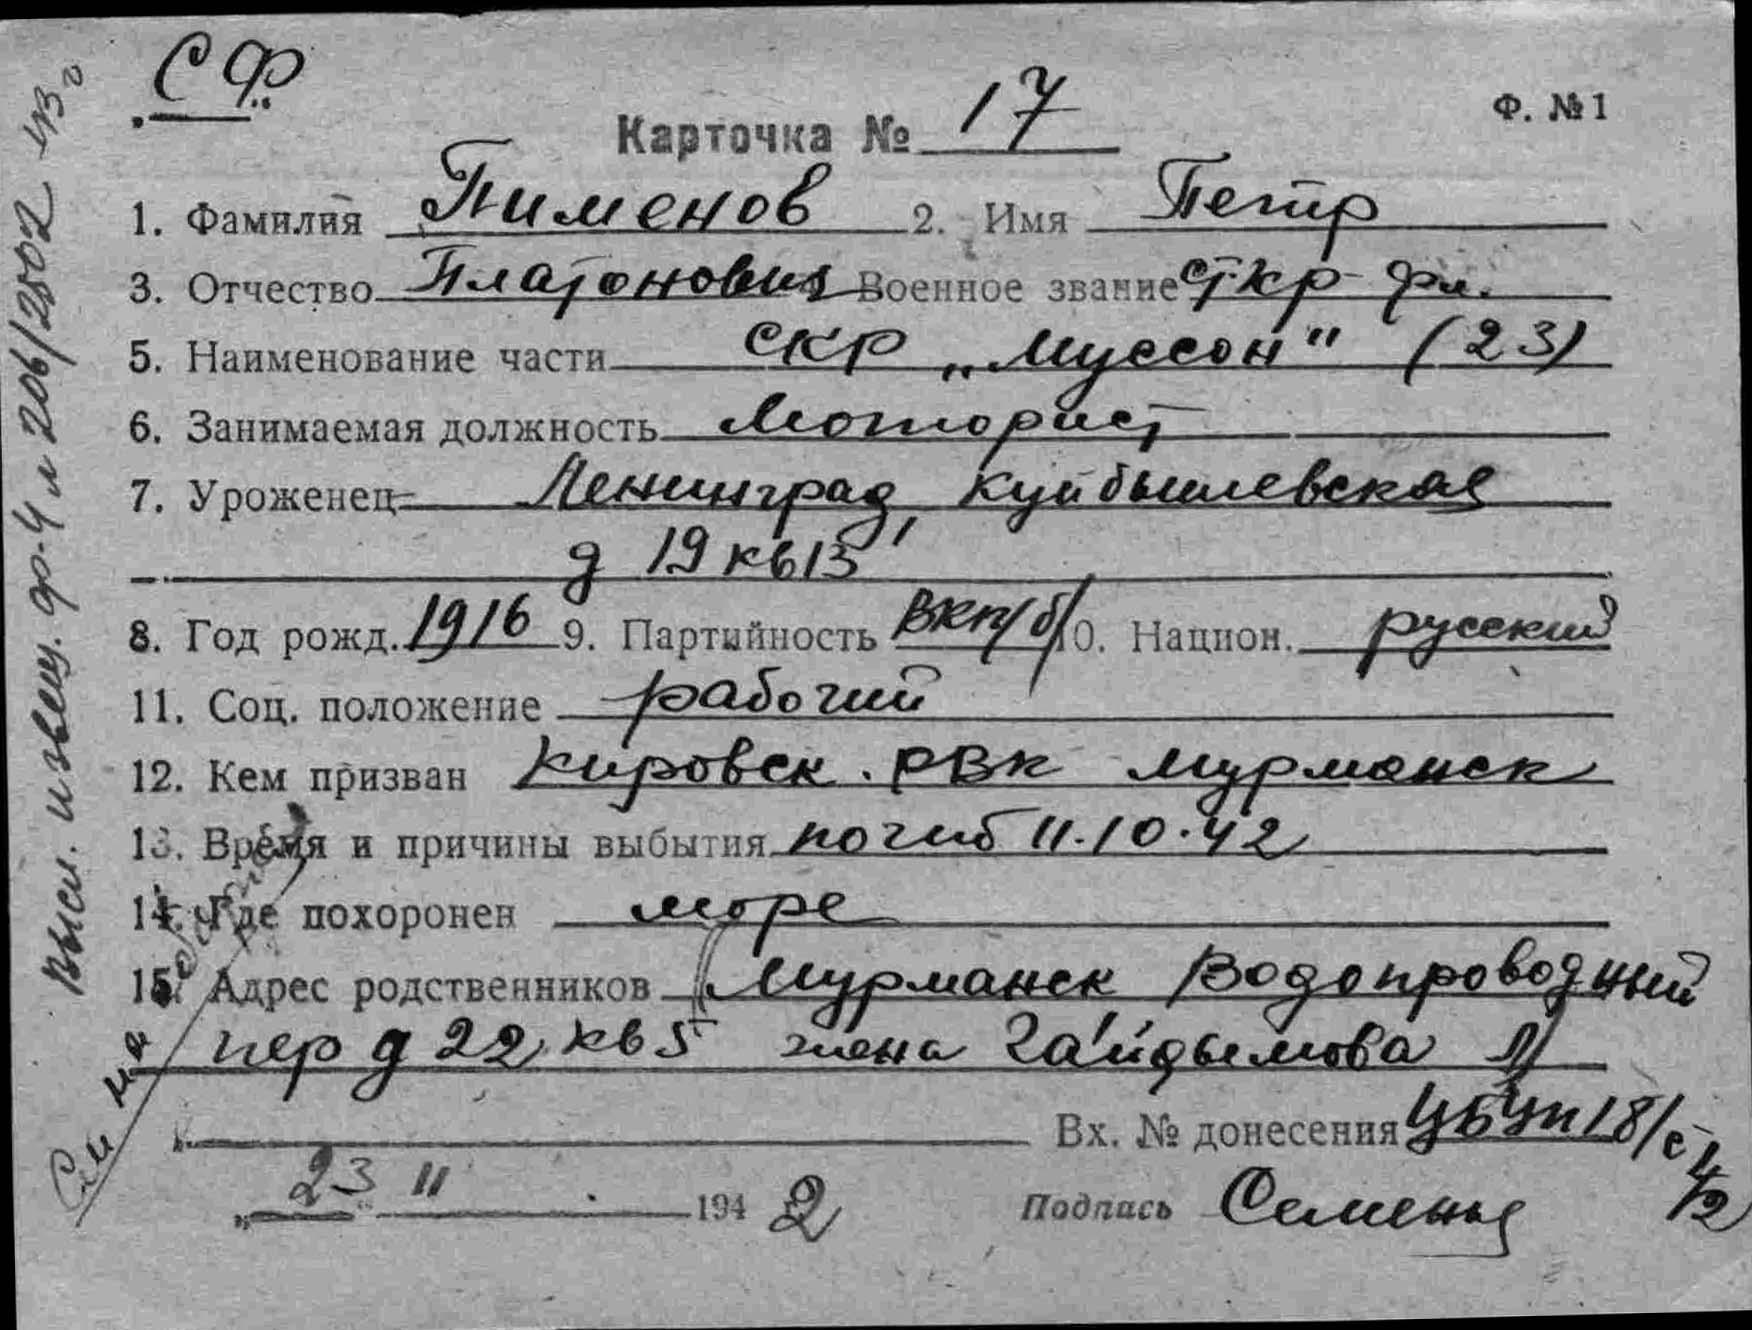 СФ
Ф. №1
Карточка № 17
1. Фамилия Пименов 2. Имя Петр
3. Отчество Платонович Военное звание ст кр-фл.
5. Наименование части СКР „Муссон" (23)
6. Занимаемая должность Моторист
7. Уроженец Ленинград, Куйбышевская
д 19 кв 13
8. Год рожд. 1916 9. Партийность ВКП/б/ 10. Национ. русский
11. Соц. положение рабочий
12. Кем призван Кировск. РВК Мурманск
13. Время и причины выбытия погиб 11.10.42
14. Где похоронен море
15. Адрес родственников Мурманск Водопроводный
пер д 22 кв 5 жена Гайдымова
Вх. № донесения ЦБУП 18/с
„23" 11 1942 Подпись Семеня
Высл. извещ. ф-4 № 206/28002 43 г
См на обороте